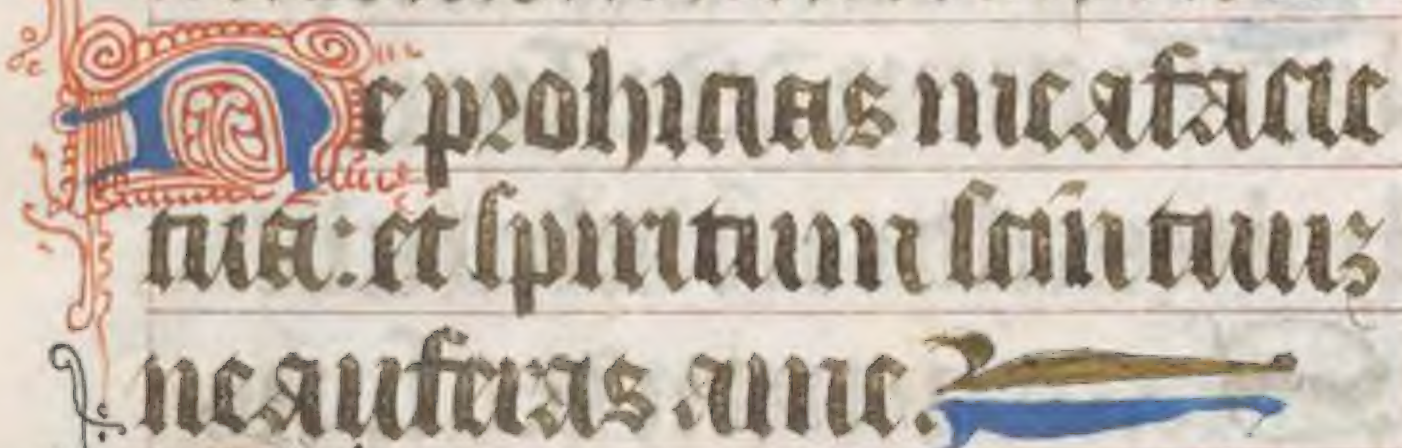 Ne prohicias me a facie
tua: et spiritum scm̄ tuuꝫ
ne auferas a me.